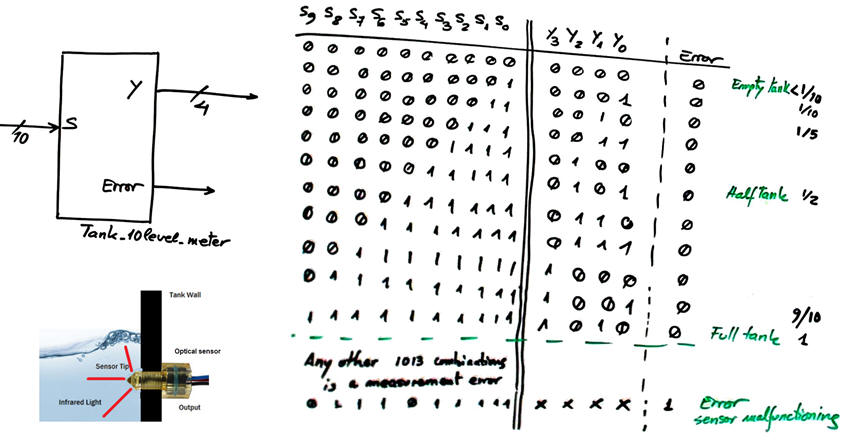 S9 S8 S7 S6 S5 S4 S3 S2 S1 S0 Y3 Y2 Y1 Y0 Error
0 0 0 0 0 0 0 0 0 0 0 0 0 0 0 Empty tank < 1/10
0 0 0 0 0 0 0 0 0 1 0 0 0 1 0 1/10
0 0 0 0 0 0 0 0 1 1 0 0 1 0 0 1/5
0 0 0 0 0 0 0 1 1 1 0 0 1 1 0
0 0 0 0 0 0 1 1 1 1 0 1 0 0 0
0 0 0 0 0 1 1 1 1 1 0 1 0 1 0 Half tank 1/2
0 0 0 0 1 1 1 1 1 1 0 1 1 0 0
0 0 0 1 1 1 1 1 1 1 0 1 1 1 0
0 0 1 1 1 1 1 1 1 1 1 0 0 0 0
0 1 1 1 1 1 1 1 1 1 1 0 0 1 0 9/10
1 1 1 1 1 1 1 1 1 1 1 0 1 0 0 Full tank 1
Any other 1013 combinations
is a measurement error
0 1 1 1 0 1 1 1 1 1 x x x x 1 Error
sensor malfunctioning
Y
4
S
10
Error
Tank_10level_meter
Tank Wall
Optical sensor
Sensor Tip
Infrared Light
Output